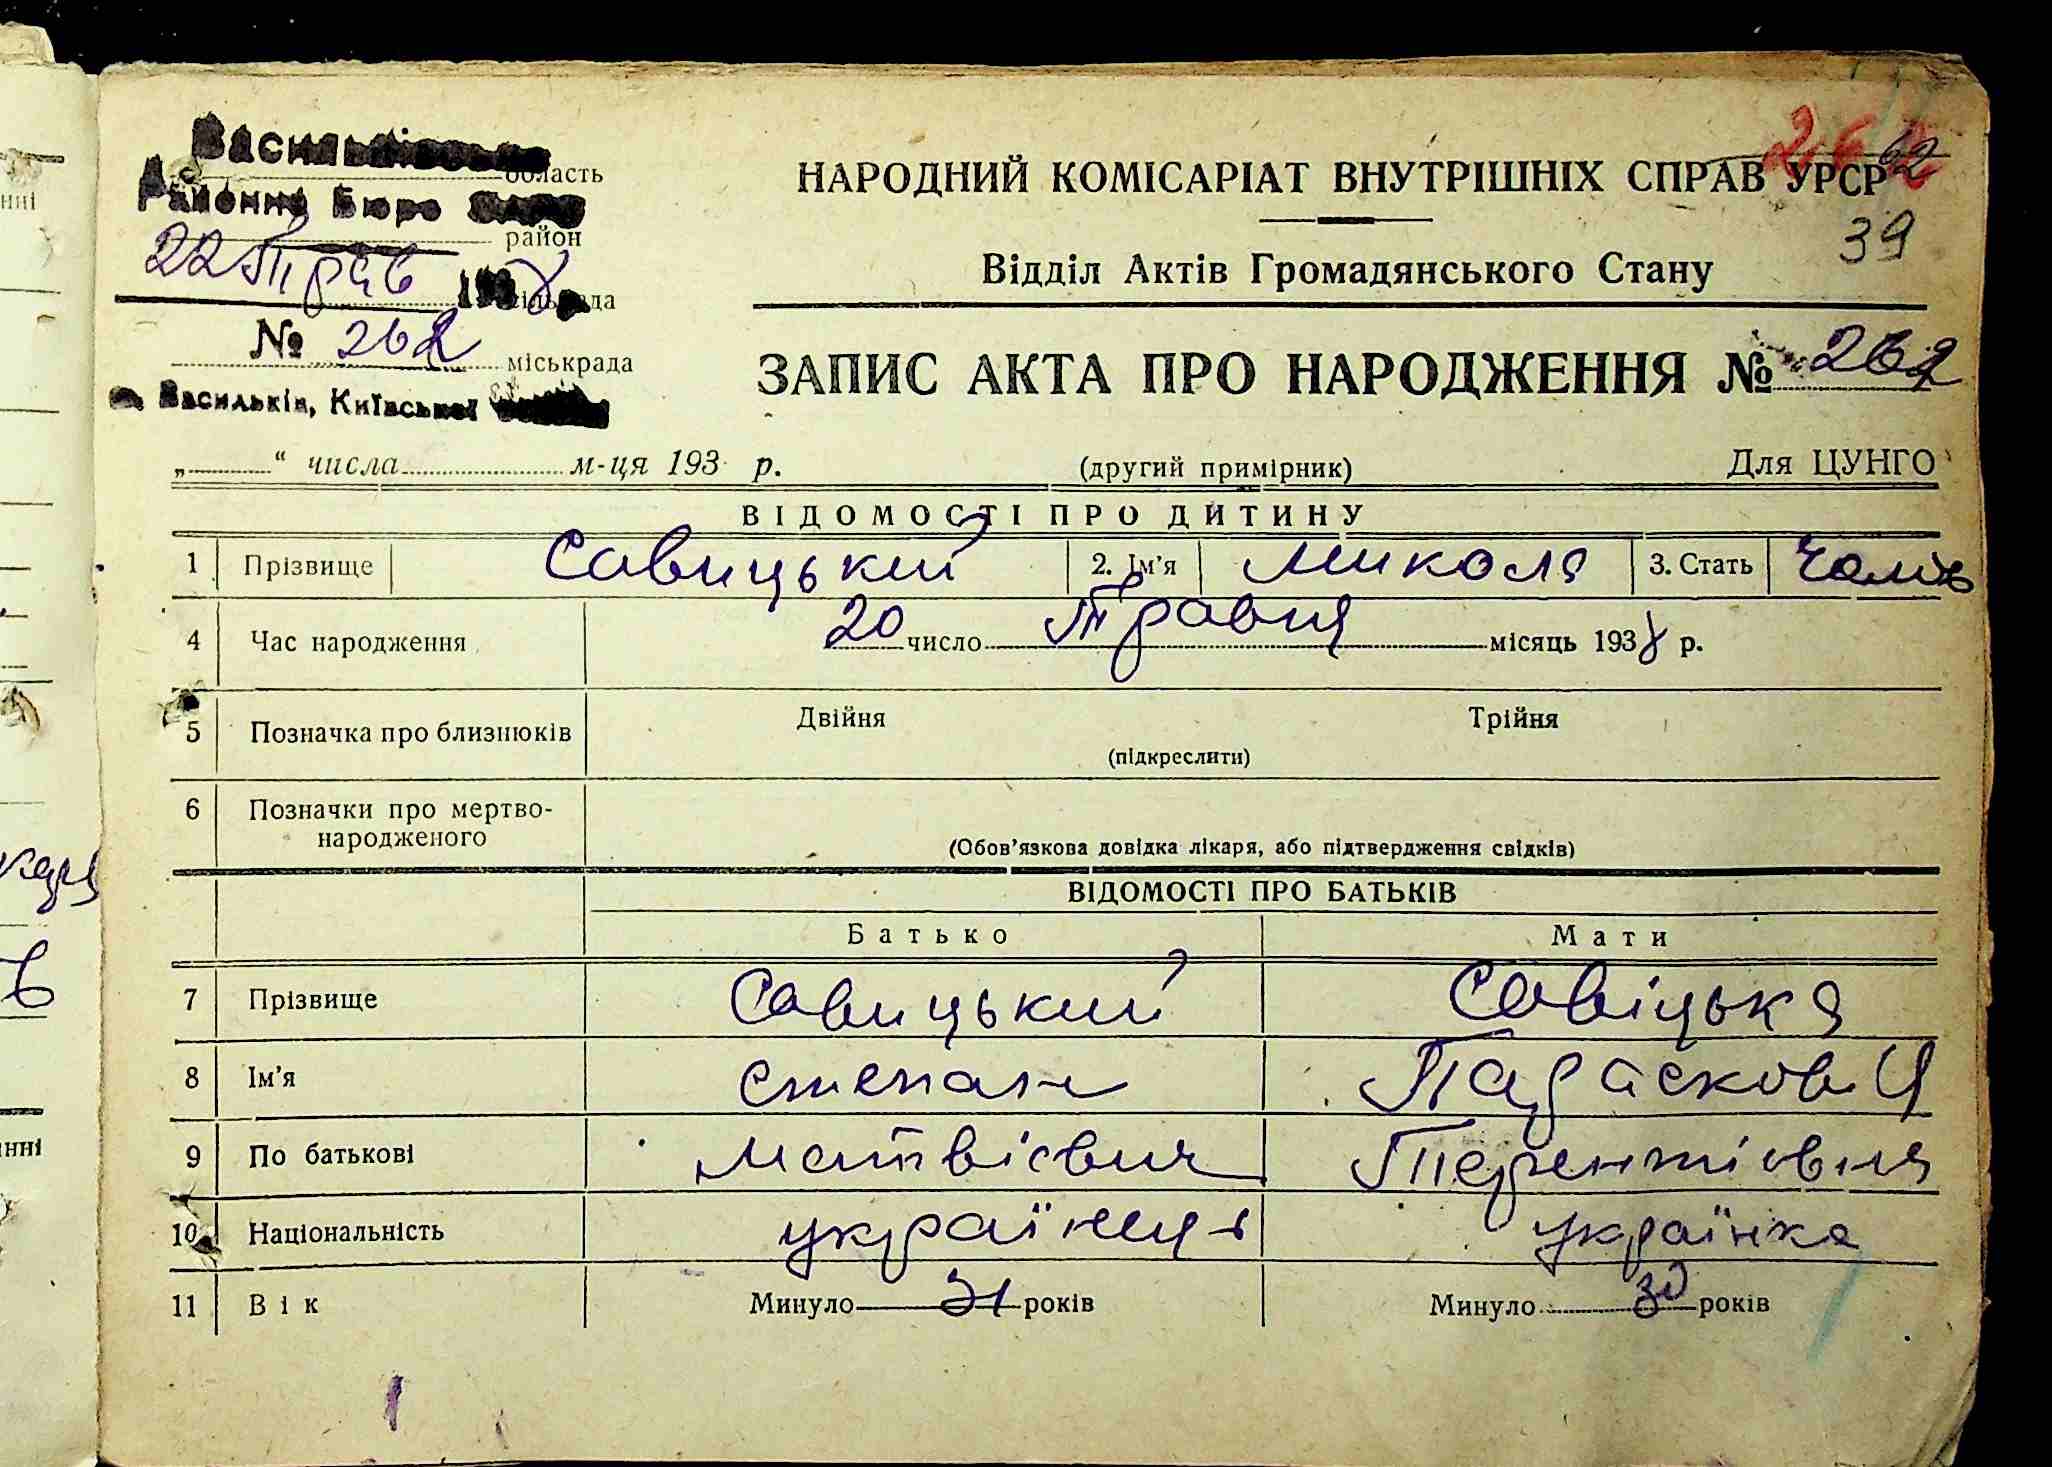 Васильківське
область
Районне Бюро
район
22 Трав 1938 р.
сільрада
№ 262
міськрада
м. Васильків, Київської
НАРОДНИЙ КОМІСАРІАТ ВНУТРІШНІХ СПРАВ УРСР
262
62
39
Відділ Актів Громадянського Стану
ЗАПИС АКТА ПРО НАРОДЖЕННЯ № 262
„ “ числа м-ця 193 р. (другий примірник) Для ЦУНГО
ВІДОМОСТІ ПРО ДИТИНУ
1 Прізвище Савицький 2. Ім’я Микола 3. Стать Чолів
4 Час народження 20 число Травня місяць 1938 р.
5 Позначка про близнюків Двійня Трійня
(підкреслити)
6 Позначки про мертво-
народженого
(Обов’язкова довідка лікаря, або підтвердження свідків)
ВІДОМОСТІ ПРО БАТЬКІВ
Батько Мати
7 Прізвище Савицький Савіцька
8 Ім’я Степан Парасковія
9 По батькові Матвієвич Терентіовна
10 Національність українець українка
11 Вік Минуло 31 років Минуло 30 років